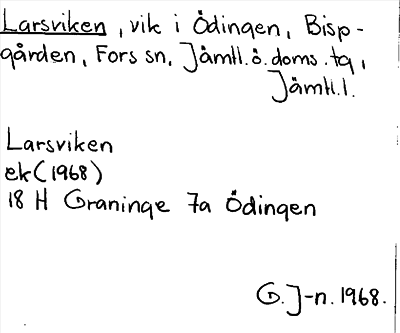 Larsviken, vik i Ödingen, Bisp-
gården, Fors sn, Jämtl.ö.doms.tg,
Jämtl.l.
Larsviken
ek (1968)
18 H Graninge 7a Ödingen
G. J-n. 1968.